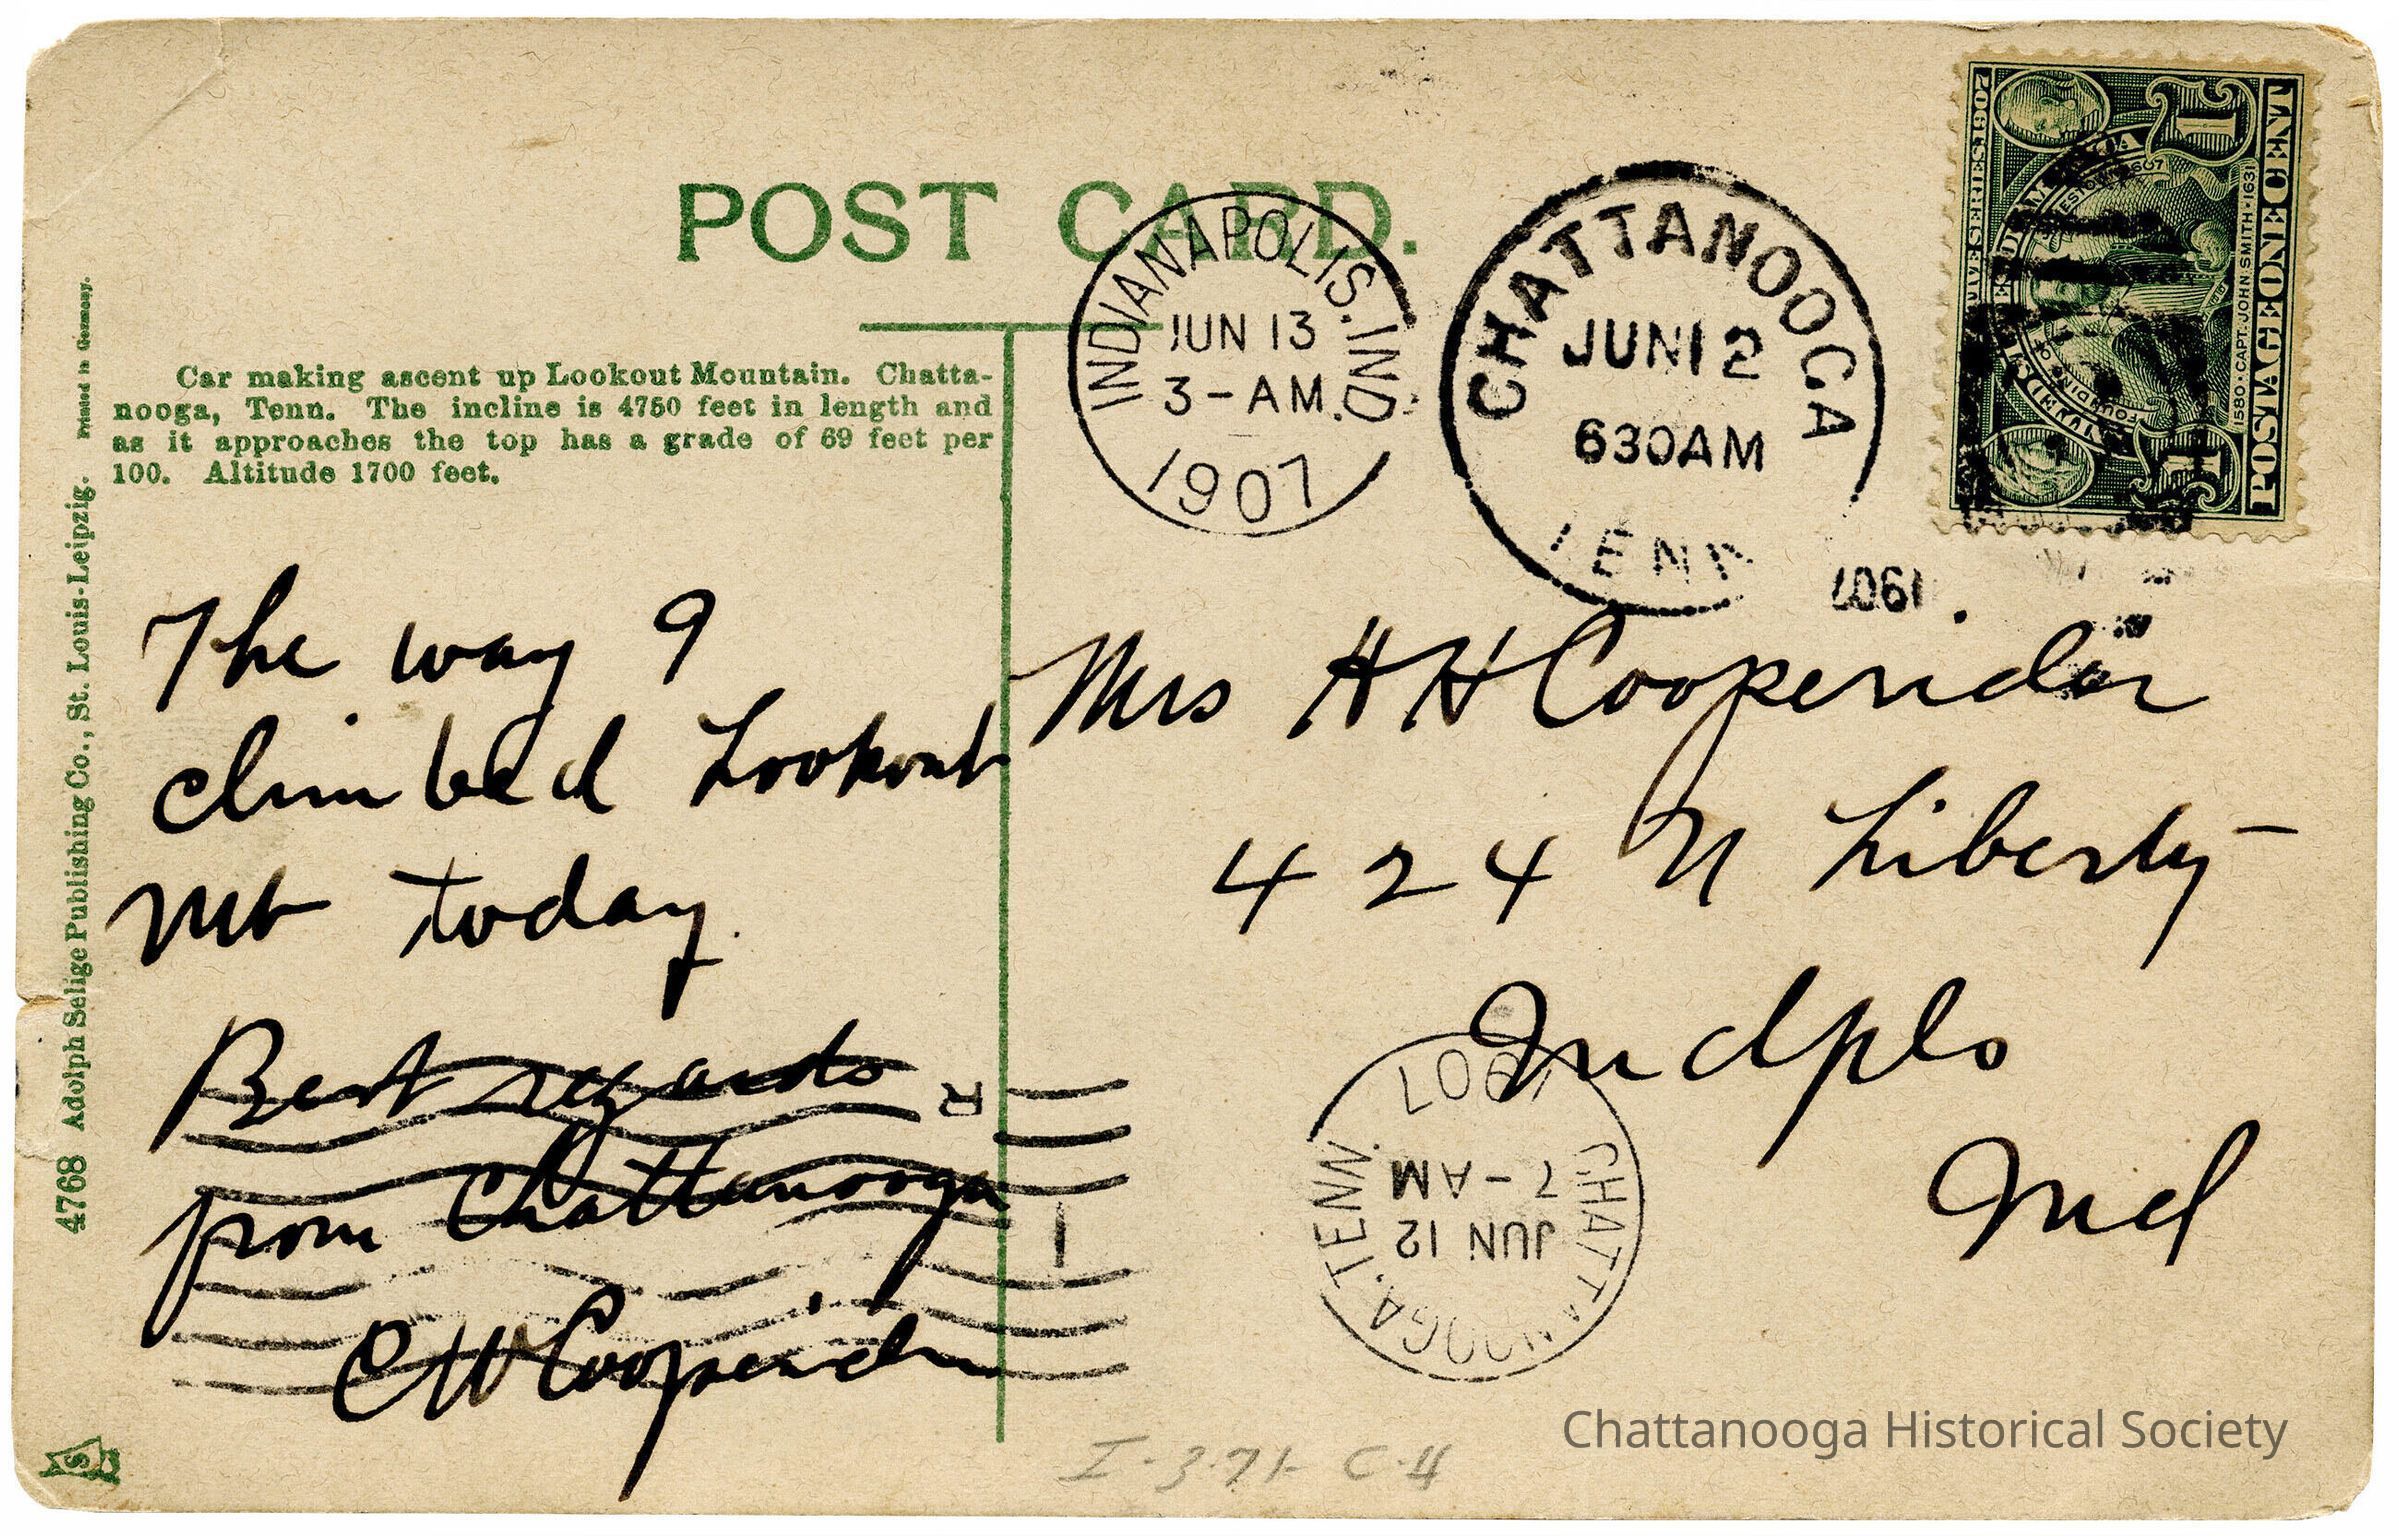 POST CARD.
Car making ascent up Lookout Mountain. Chatta-
nooga, Tenn. The incline is 4750 feet in length and
as it approaches the top has a grade of 69 feet per
100. Altitude 1700 feet.
4768 Adolph Selige Publishing Co., St. Louis-Leipzig. Printed in Germany.
S
The way I
climbed Lookout
Mt today.
Best regards
from Chattanooga
C W Cooperider
INDIANAPOLIS. IND.
JUN 13
3-AM.
1907
CHATTANOOGA
JUN 12
630AM
TENN
1907
UNITED STATES POSTAGE
SERIES 1907
FOUNDING OF
1580 · CAPT. JOHN SMITH · 1631
1
1
Mrs H H Cooperider
424 N Liberty
Indpls
Ind
R
1
CHATTANOOGA. TENN.
JUN 12
7-AM
1907
I-3-71- C-4
Chattanooga Historical Society